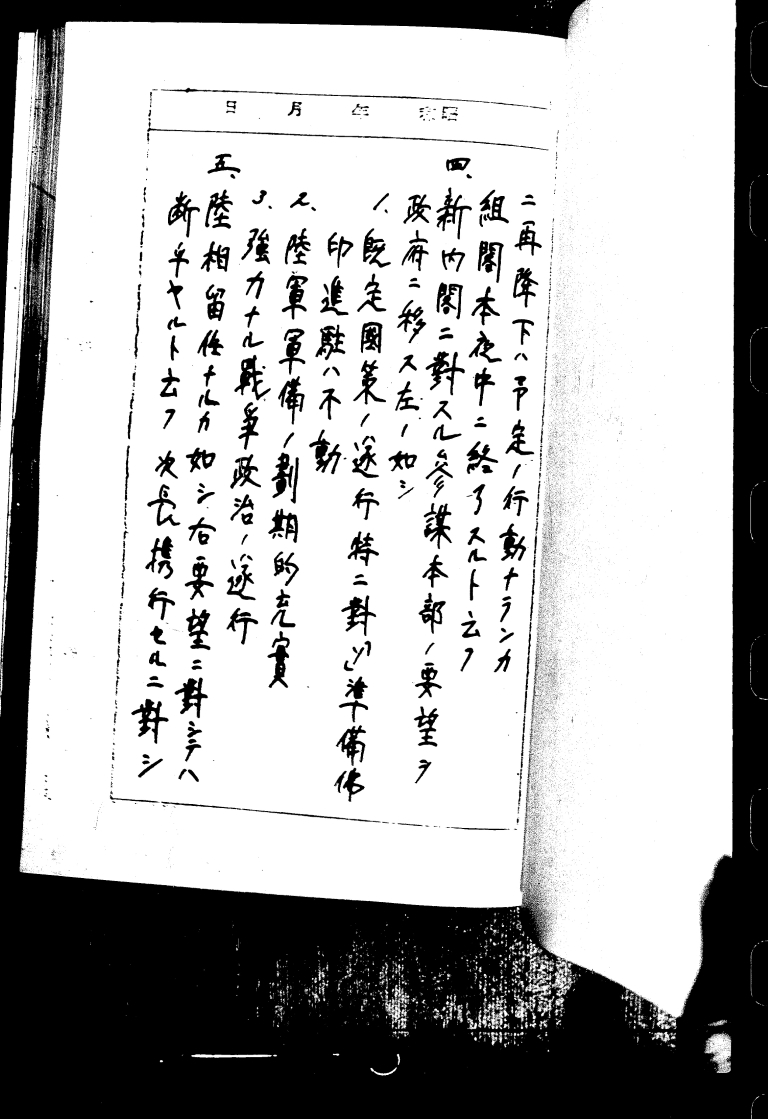 昭和　年　月　日
ニ再降下ハ予定ノ行動ナランカ
組閣本夜中ニ終了スルト云フ
四、新内閣ニ對スル参謀本部ノ要望ヲ
政府ニ移ス左ノ如シ
1、既定國策ノ遂行特ニ對「ソ」準備佛
印進駐ハ不動
2、陸軍軍備ノ劃期的充實
3、強力ナル戰爭政治ノ遂行
五、陸相留任ナルカ如シ右要望ニ對シテハ
断乎ヤルト云フ次長携行セルニ對シ